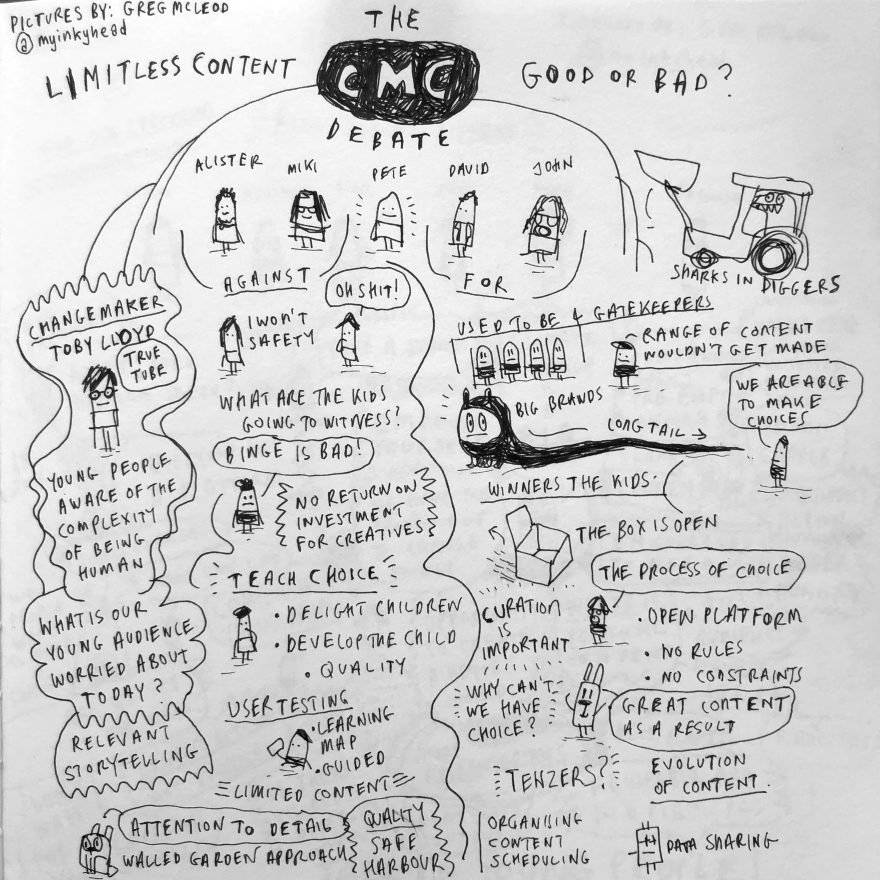 PICTURES BY: GREG MCLEOD
@myinkyhead
THE
CMC
DEBATE
LIMITLESS CONTENT
GOOD OR BAD?
ALISTER
MIKI
PETE
DAVID
JOHN
AGAINST
FOR
SHARKS IN DIGGERS
CHANGEMAKER
TOBY LLOYD
TRUE
TUBE
YOUNG PEOPLE
AWARE OF THE
COMPLEXITY
OF BEING
HUMAN
WHAT IS OUR
YOUNG AUDIENCE
WORRIED ABOUT
TODAY?
RELEVANT
STORYTELLING
OH SHIT!
I WON'T
SAFETY
WHAT ARE THE KIDS
GOING TO WITNESS?
BINGE IS BAD!
NO RETURN ON
INVESTMENT
FOR CREATIVES
TEACH CHOICE
• DELIGHT CHILDREN
• DEVELOP THE CHILD
• QUALITY
USER TESTING
• LEARNING
MAP
• GUIDED
LIMITED CONTENT
ATTENTION TO DETAIL
WALLED GARDEN APPROACH
QUALITY
SAFE
HARBOUR
USED TO BE 4 GATEKEEPERS
RANGE OF CONTENT
WOULDN'T GET MADE
BIG BRANDS
LONG TAIL →
WE ARE ABLE
TO MAKE
CHOICES
WINNERS THE KIDS.
THE BOX IS OPEN
THE PROCESS OF CHOICE
CURATION
IS
IMPORTANT
• OPEN PLATFORM
• NO RULES
• NO CONSTRAINTS
WHY CAN'T
WE HAVE
CHOICE?
GREAT CONTENT
AS A RESULT
TENZERS?
EVOLUTION
OF CONTENT
ORGANISING
CONTENT
SCHEDULING
DATA SHARING